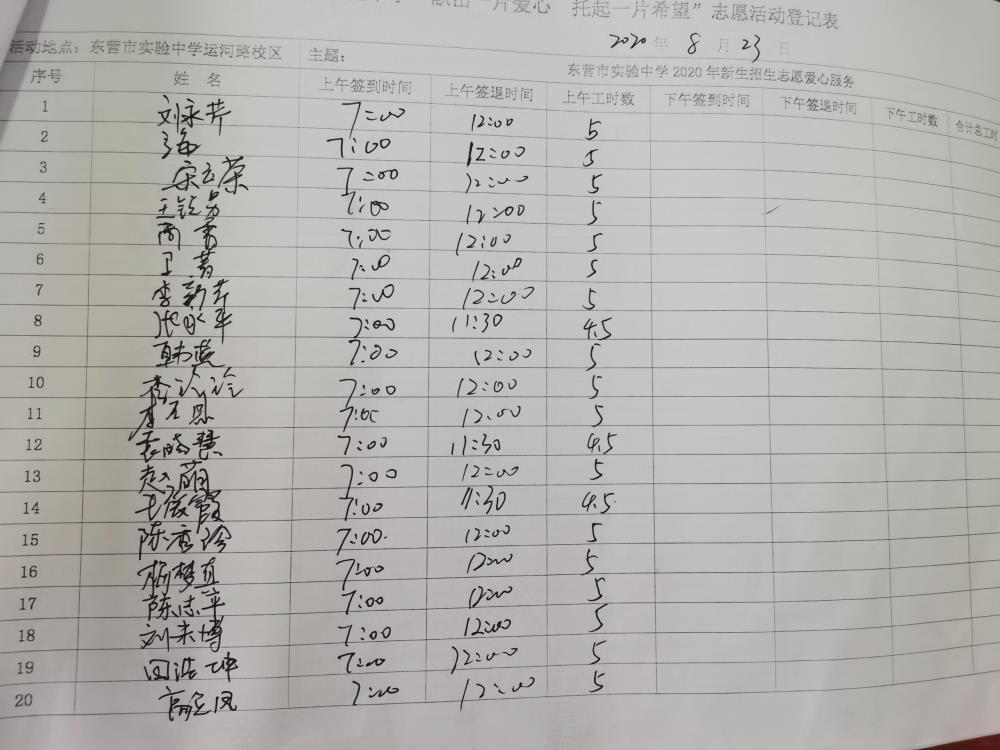 献出一片爱心 托起一片希望”志愿活动登记表
2020年 8月23日
活动地点：东营市实验中学运河路校区 主题： 东营市实验中学2020年新生招生志愿爱心服务
序号 姓名 上午签到时间 上午签退时间 上午工时数 下午签到时间 下午签退时间 下午工时数 合计总工时
1 刘永芹 7:00 12:00 5
2 7:00 12:00 5
3 宋玉荣 7:00 12:00 5
4 7:00 12:00 5
5 7:00 12:00 5
6 7:00 12:00 5
7 李新芹 7:00 12:00 5
8 张永平 7:00 11:30 4.5
9 韩燕 7:00 12:00 5
10 7:00 12:00 5
11 7:00 12:00 5
12 袁晓慧 7:00 11:30 4.5
13 赵萌 7:00 12:00 5
14 7:00 11:30 4.5
15 陈秀玲 7:00 12:00 5
16 杨梦真 7:00 12:00 5
17 陈志平 7:00 12:00 5
18 刘来博 7:00 12:00 5
19 田浩坤 7:00 12:00 5
20 7:00 12:00 5